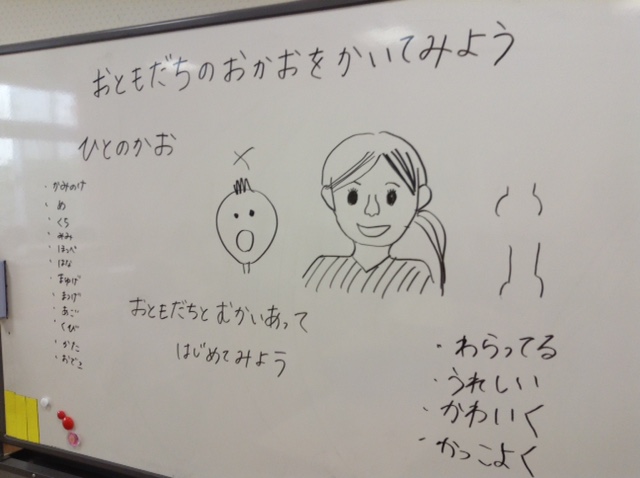 おともだちのおかおをかいてみよう
ひとのかお
×
・かみのけ
・め
・くち
・みみ
・ほっぺ
・はな
・まゆげ
・まつげ
・あご
・くび
・かた
・おでこ
おともだちとむかいあって
はじめてみよう
・わらってる
・うれしい
・かわいく
・かっこよく